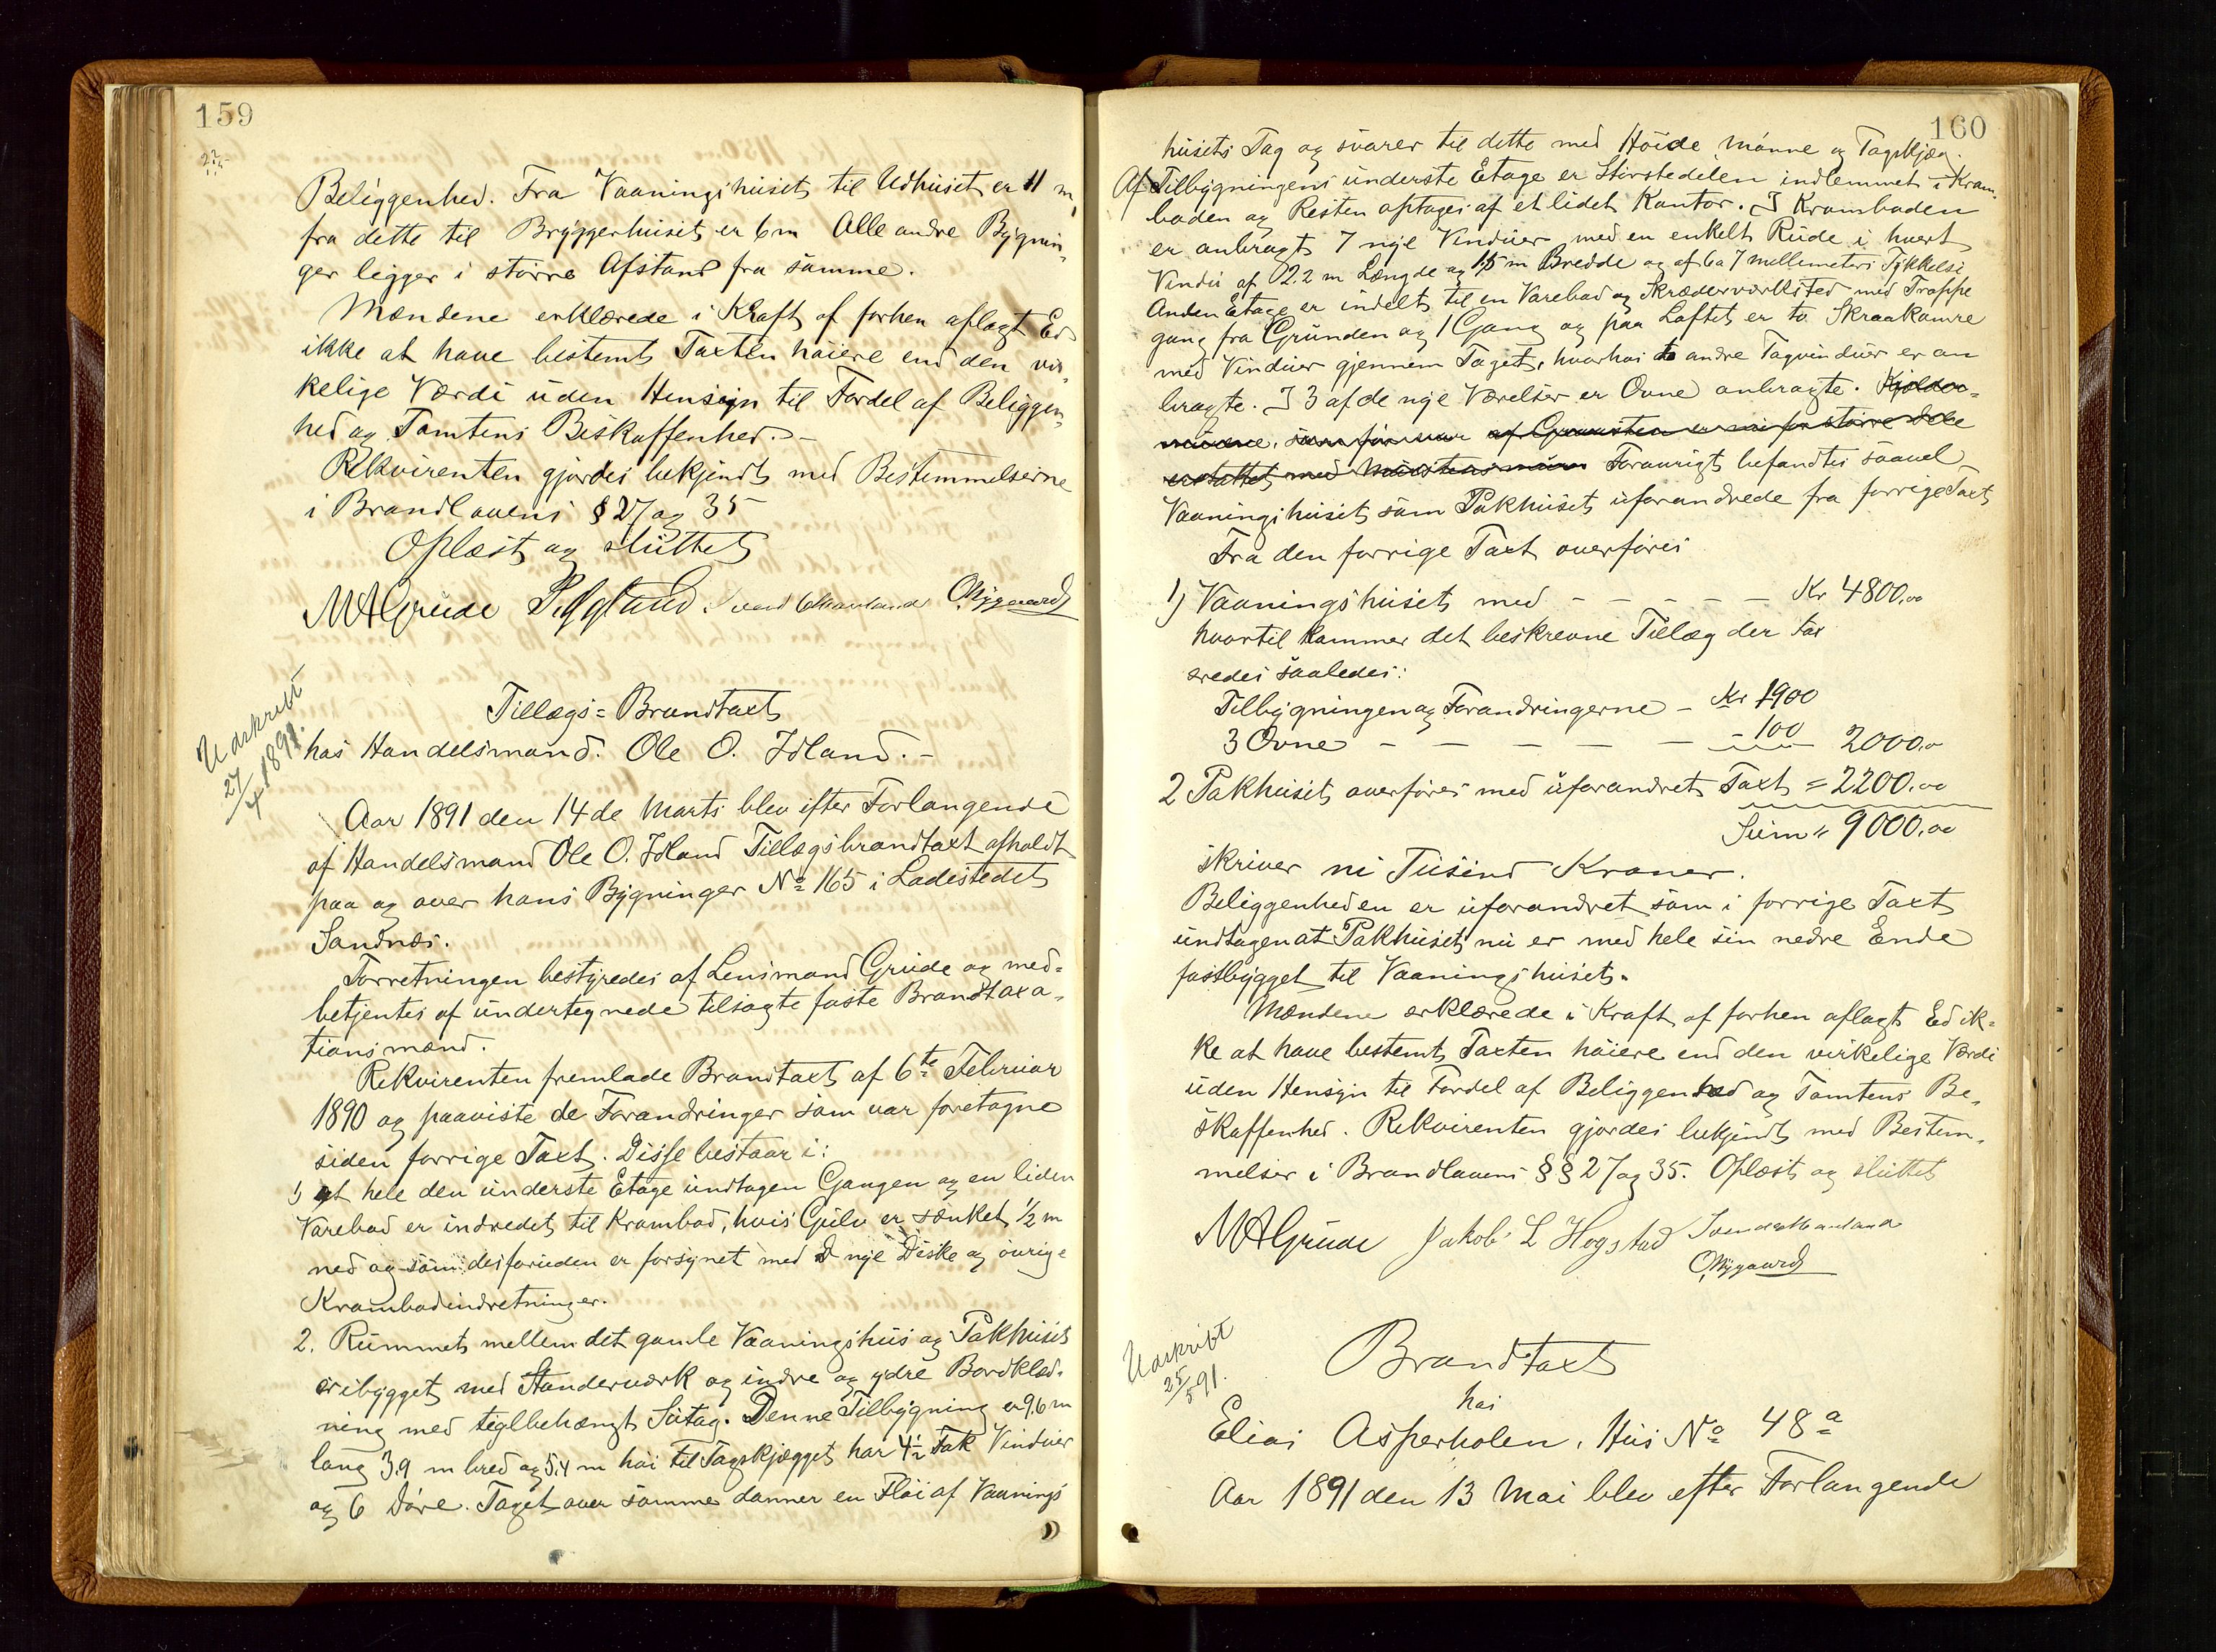 159
Beliggenhed. Fra Vaaningshuset til Udhuset er 11 m,
fra dette til Bryggerhuset er 6 m Alle andre Bygnin-
ger ligger i större Afstand fra samme.
Mændene erklærede i Kraft af forhen aflagt Ed
ikke at have bestemt Taxten höiere end den vir-
kelige Værdi uden Hensyn til Fordel af Beliggen-
hed og Tomtens Beskaffenhed.-
Rekvirenten gjordes bekjendt med Bestemmelserne
i Brandlovens § 27 og 35
Oplæst og sluttet
M A Grude Svend Nygaard
Udskribt
27/4 1891.
Tillægs=Brandtaxt
hos Handelsmand Ole O. Idland.-
Aar 1891 den 14de Marts blev efter Forlangende
af Handelsmand Ole O. Idland Tillægsbrandtaxt afholdt
paa og over hans Bygninger No 165 i Ladestedet
Sandnæs.
Forretningen bestyredes af Lensmand Grude og med-
betjentes af undertegnede tilsagte faste Brandtaxa-
tionsmænd.
Rekvirenten fremlade Brandtaxt af 6te Februar
1890 og paaviste de Forandringer som var foretagne
siden forrige Taxt. Disse bestaar i:
1) at hele den underste Etage undtagen Gangen og en liden
Varebod er indredet til Krambod, hvis Gulv er sænket 1/2 m
ned og som desforuden er forsynet med nye Diske og övrige
Krambodindretninger.
2. Rummet mellem det gamle Vaaningshus og Pakhuset
er ibygget med Standerværk og indre og ydre Bordklæd-
ning med teglbehængt Sutag. Denne Tilbygning er 9.6 m
lang 3.9 m bred og 5.4 m höi til Tagskjægget har 4½ Fak Vinduer
og 6 Döre. Taget over samme danner en Flöi af Vaanings
160
husets Tag og svarer til dette med Höide, Mönne og Tagskjæg.
Af Tilbygningens underste Etage er Störstedelen indlemmet i Kram-
boden og Resten optages af et lidet Kontor. I Kramboden
er anbragt 7 nye Vinduer med en enkelt Rude i hvert
Vindu af 2.2 m Længde og 1,5 m Bredde og af 6 a 7 mellemeters Tykkelse
Anden Etage er indelt til en Varebod og Skræderværksted med Trappe
gang fra Grunden og 1 Gang og paa Loftet er to Skraakamre
med Vinduer gjennem Taget, hvorhos to andre Tagvinduer er an
bragte. I 3 af de nye Værelser er Ovne anbragte. Kjelder-
murene, som för var af Graasten er nu for större Dele
erstattet med Murstensmure Forövrigt befandtes saavel
Vaaningshuset som Pakhuset uforandrede fra forrige Taxt
Fra den forrige Taxt overföres
1) Vaaningshuset med - - - - - Kr 4800,00
hvortil kommer det beskrevne Tillæg der tax
eredes saaledes:
Tilbygningen og Forandringerne - Kr 1900
3 Ovne - - - - - - 100 2000,00
2 Pakhuset overföres med uforandret Taxt = 2200,00
Sum " 9000,00
skriver ni Tusind Kroner.
Beliggenheden er uforandret som i forrige Taxt
undtagen at Pakhuset nu er med hele sin nedre Ende
fastbygget til Vaaningshuset.
Mændene erklærede i Kraft af forhen aflagt Ed ik-
ke at have bestemt Taxten höiere end den virkelige Værdi
uden Hensyn til Fordel af Beliggenhed og Tomtens Be-
skaffenhed. Rekvirenten gjordes bekjendt med Bestem-
melser i Brandlovens §§ 27 og 35. Oplæst og sluttet
M A Grude Jakob L Hogstad
O Nygaard
Udskribt
25/5 91.
Brandtaxt
hos
Elias Asperholen, Hus No 48a
Aar 1891 den 13 Mai blev efter Forlangende